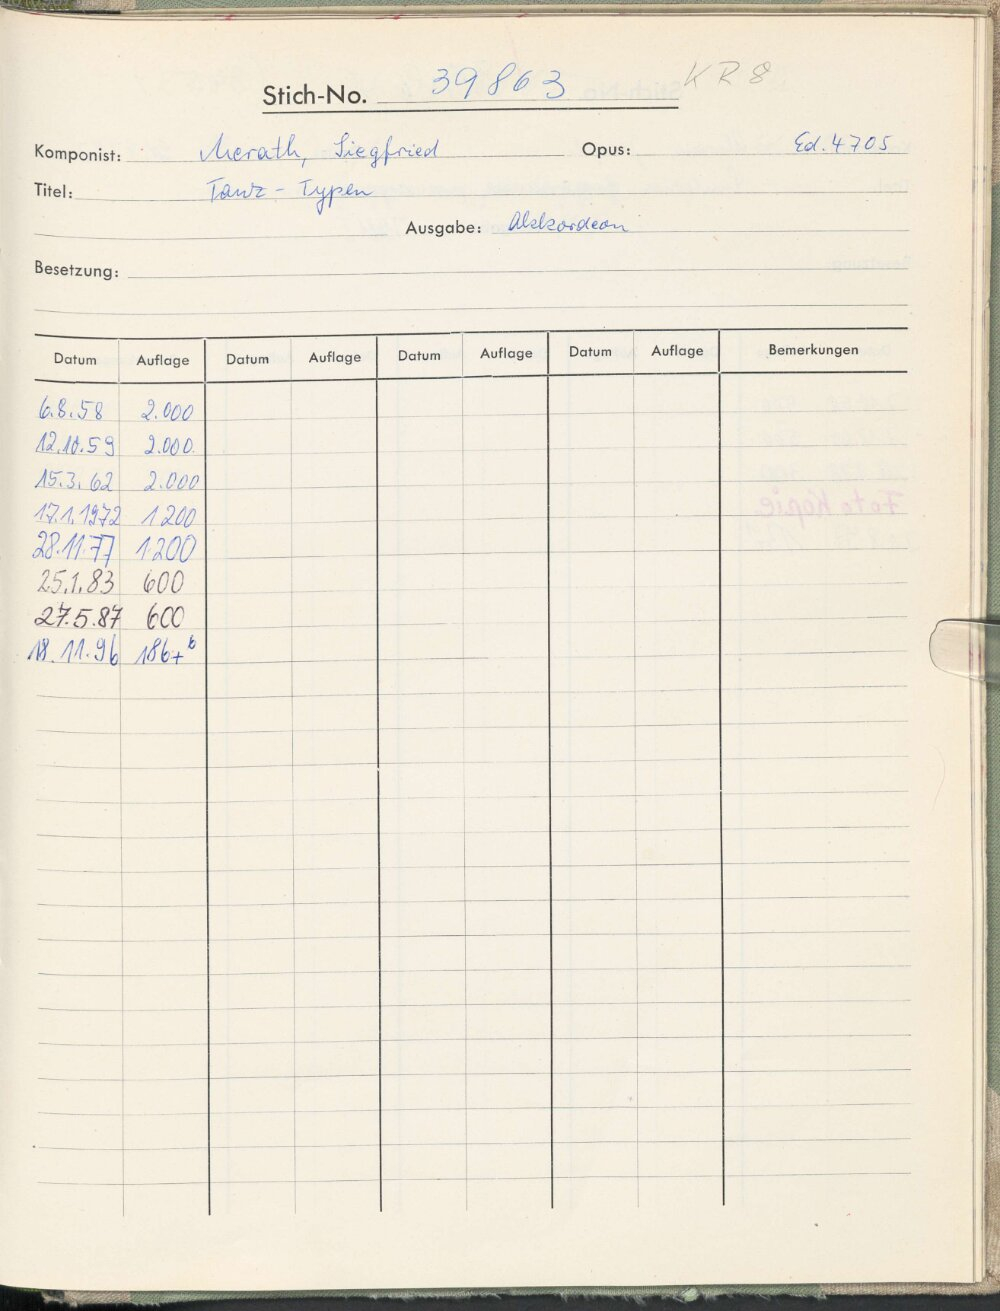 Stich-No. 39863 KR8
Komponist: Merath, Siegfried Opus: Ed. 4705
Titel: Tanz - Typen
Ausgabe: Akkordeon
Besetzung:
Datum Auflage Datum Auflage Datum Auflage Datum Auflage Bemerkungen
6.8.58 2.000
12.10.59 2.000.
15.3.62 2.000
17.1.1972 1200
28.11.77 1.200
25.1.83 600
27.5.87 600
18.11.96 186+6